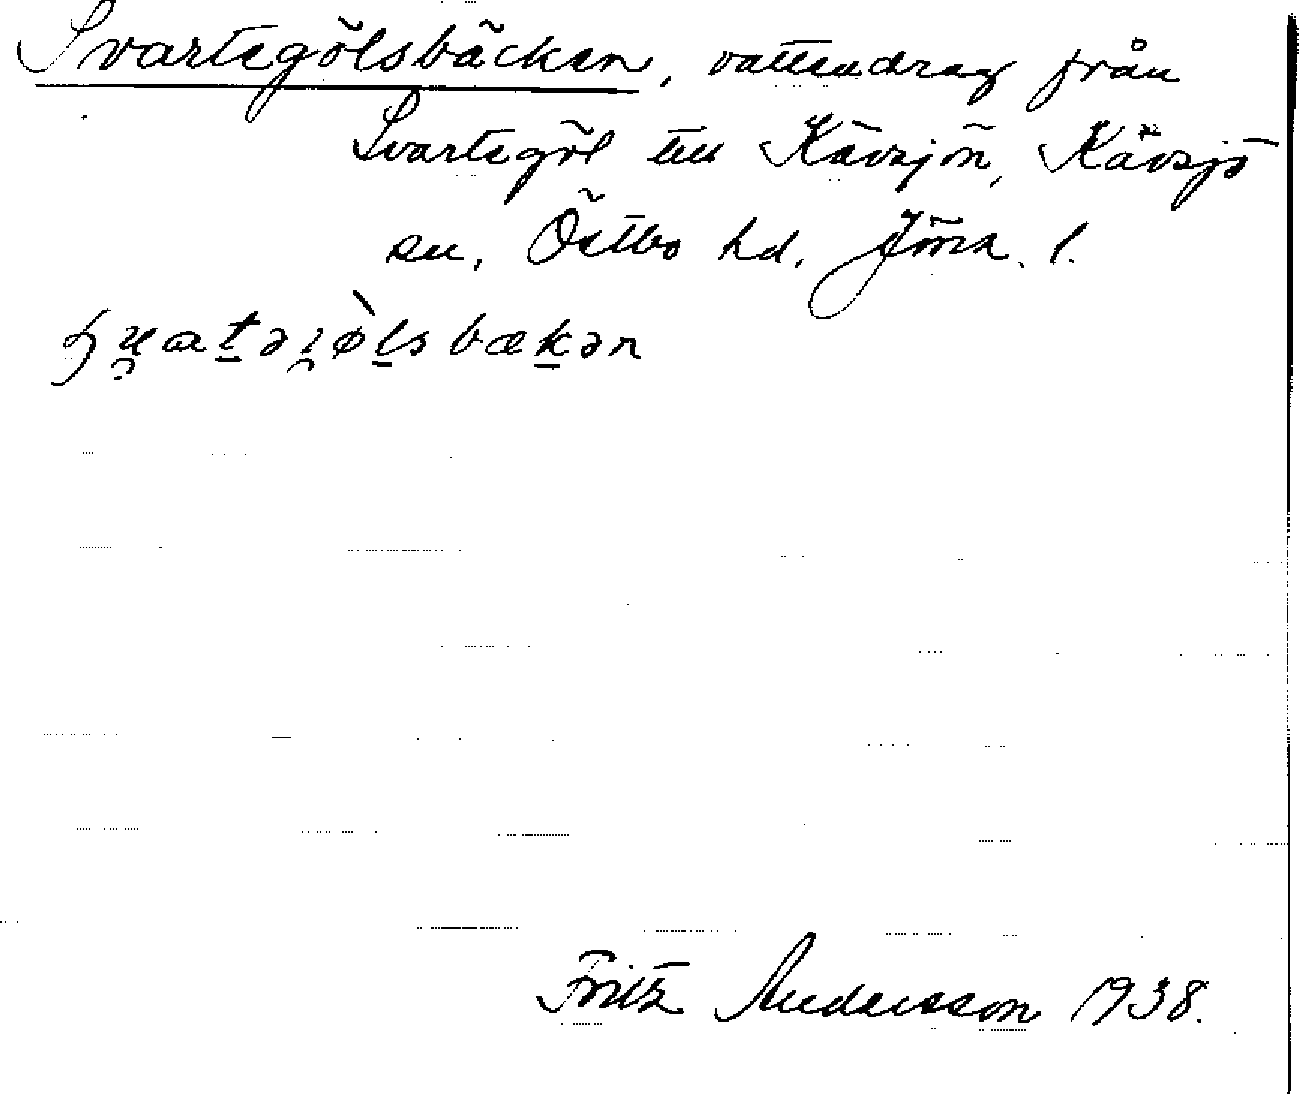 Svartegölsbäcken, vattendrag från
Svartegöl till Kävsjön, Kävsjö
sn, Östbo hd. Jön. l.
Fritz Andersson 1938.